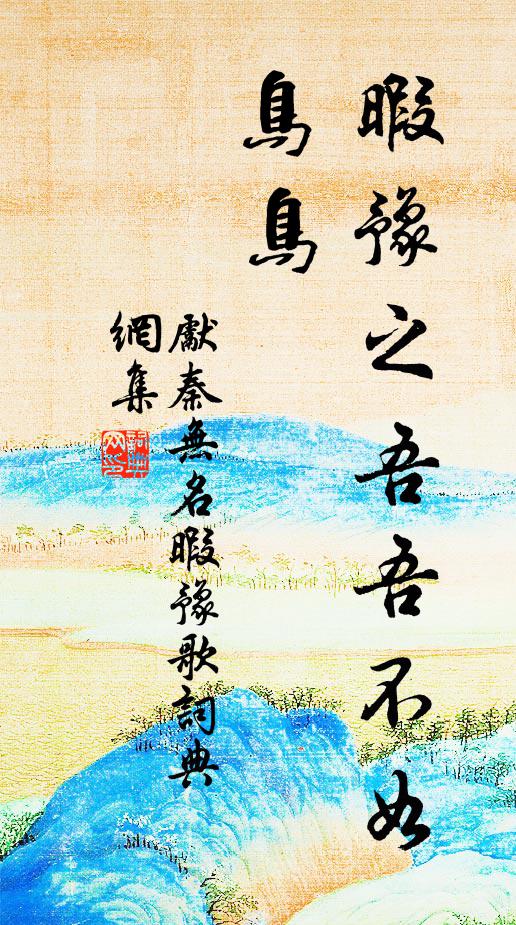 暇豫之吾吾不如
鳥鳥
獻秦無名暇豫歌詞典
網集